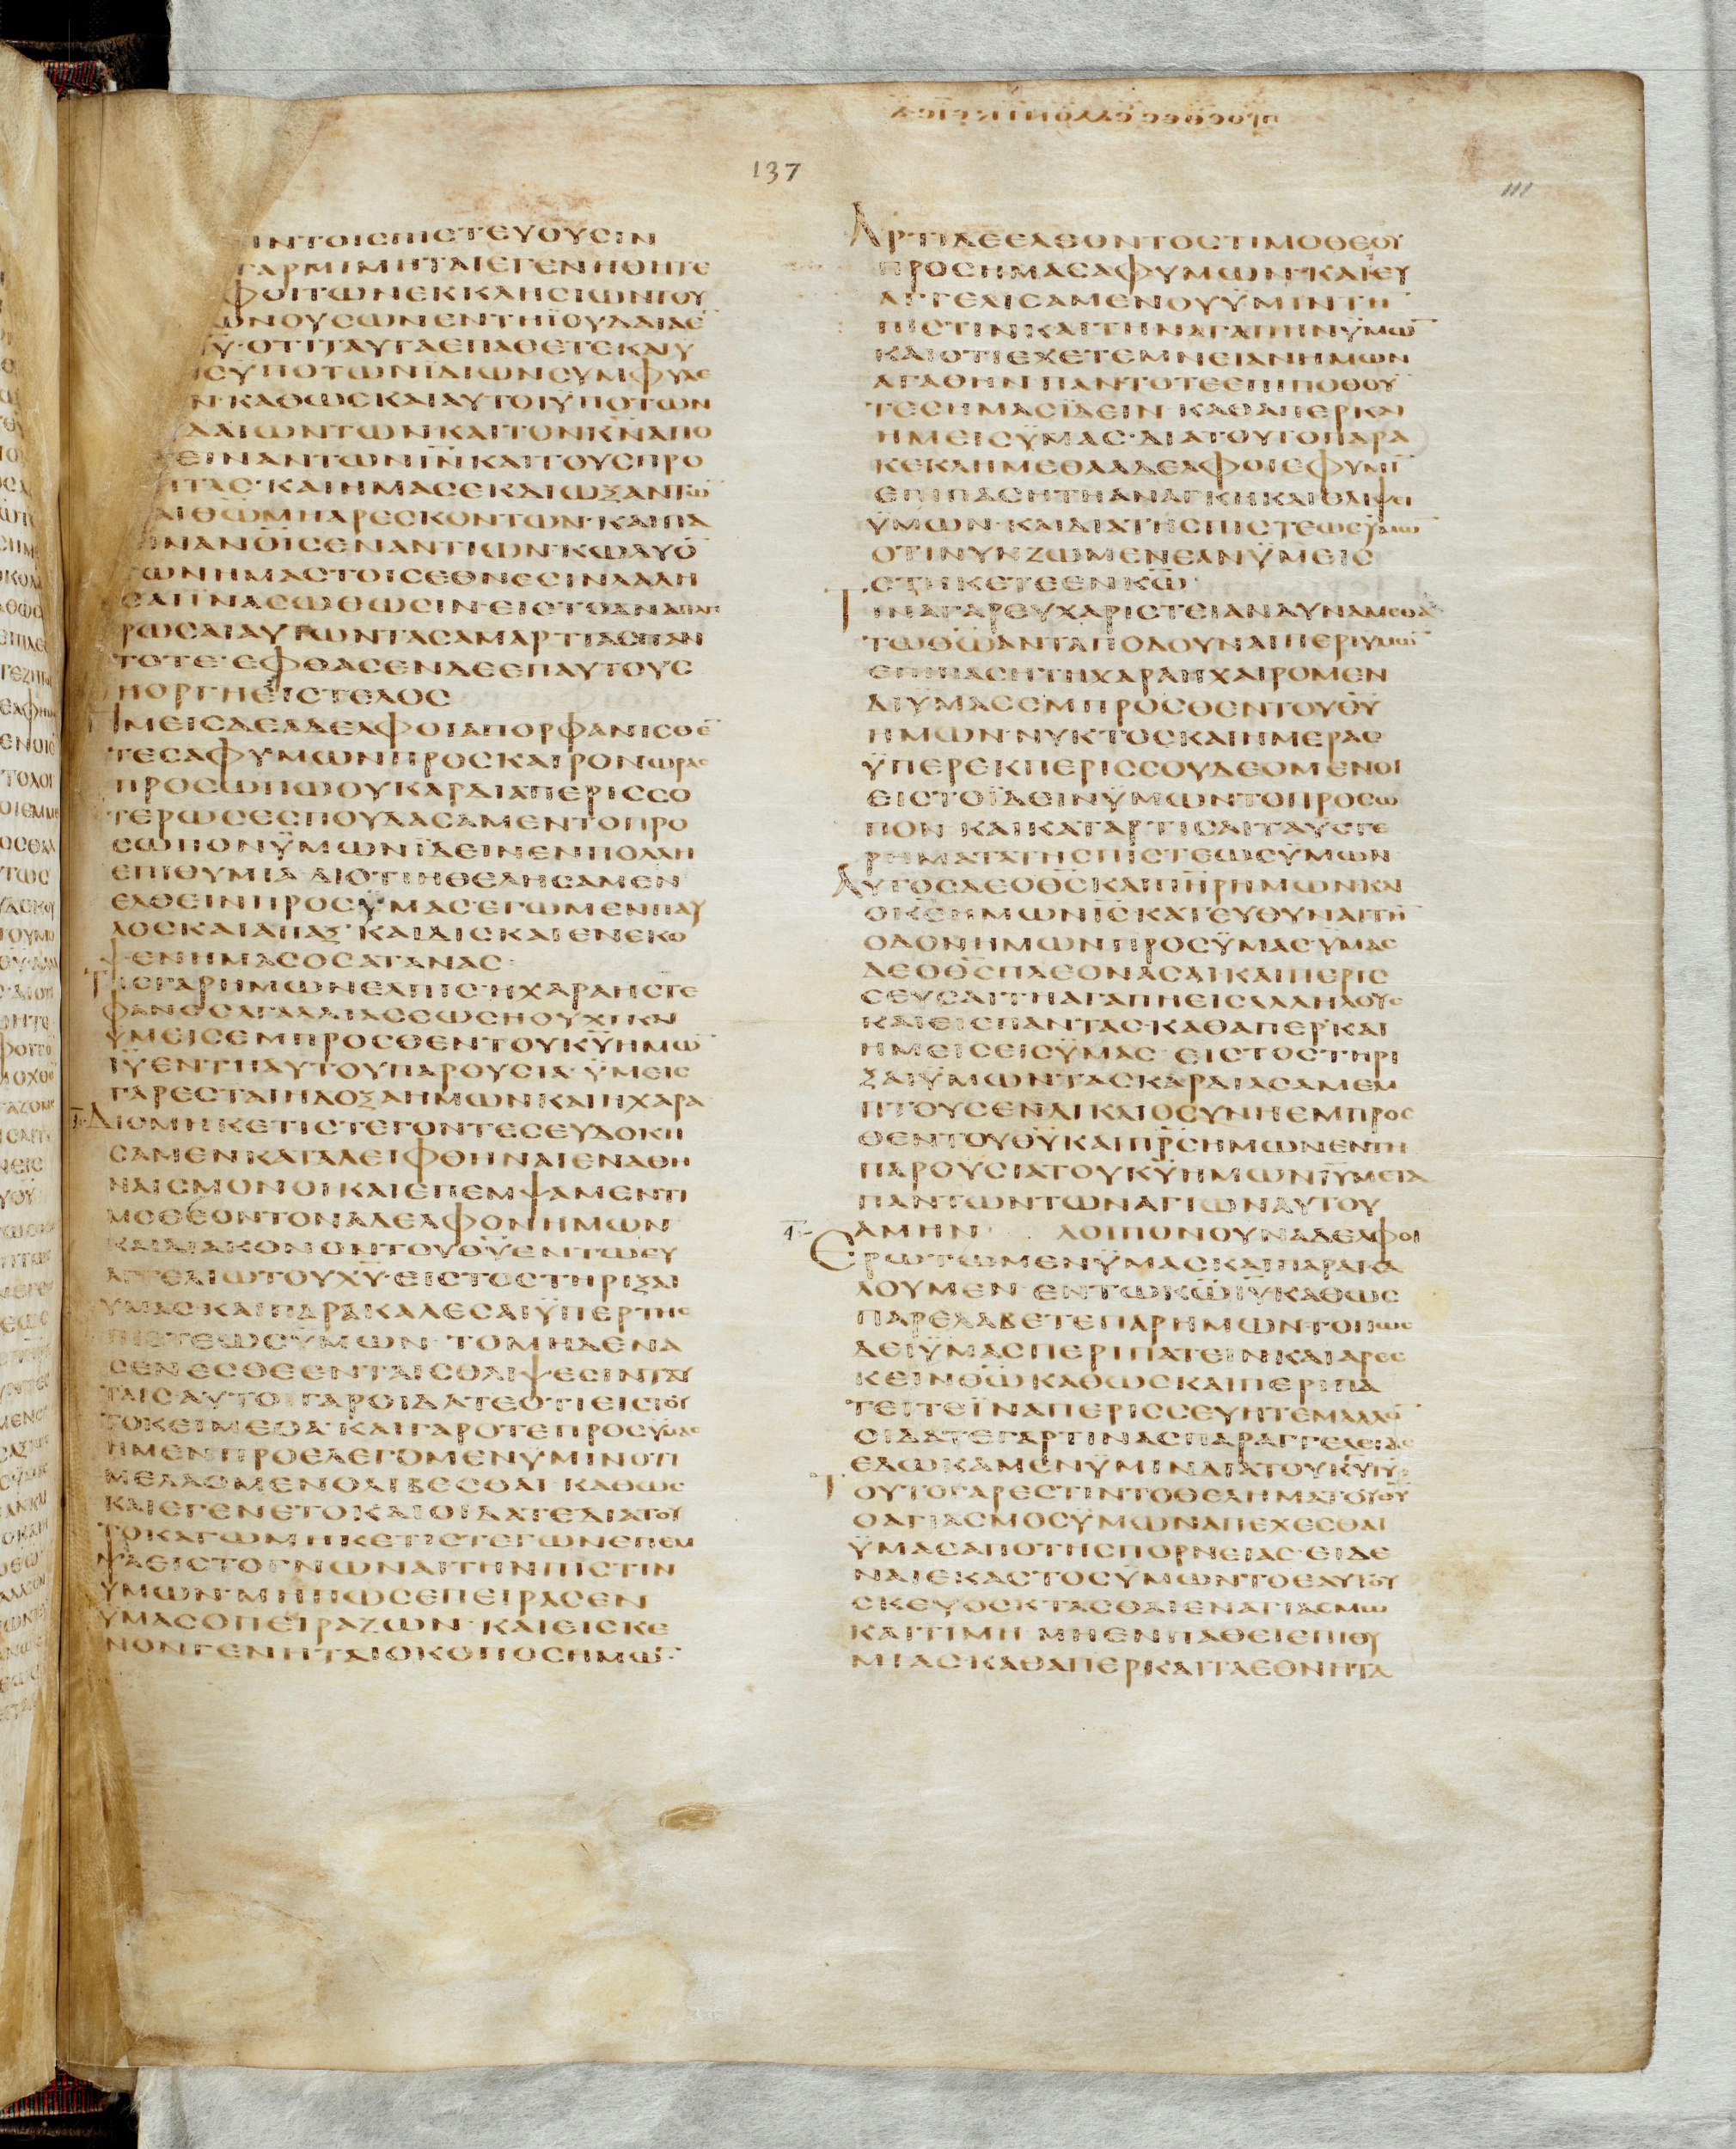 137
111
ΙΝΤΟΙϹΠΙϹΤΕΥΟΥϹΙΝ
ΓΑΡΜΙΜΗΤΑΙΕΓΕΝΗΘΗΤΕ
ΦΟΙΤΩΝΕΚΚΛΗϹΙΩΝΤΟΥ
ΩΝΟΥϹΩΝΕΝΤΗΪΟΥΔΑΙΑΕ̅
Υ̅·ΟΤΙΤΑΥΤΑΕΠΑΘΕΤΕΚΑΙΥ
ϹΫΠΟΤΩΝΪΔΙΩΝϹΥΜΦΥΛΕ
Ν·ΚΑΘΩϹΚΑΙΑΥΤΟΙΫΠΟΤΩΝ
ΔΑΙΩΝΤΩΝΚΑΙΤΟΝΚ̅Ν̅ΑΠΟ
ΕΙΝΑΝΤΩΝΙ̅Ν̅ΚΑΙΤΟΥϹΠΡΟ
ΤΑϹ·ΚΑΙΗΜΑϹΕΚΔΙΩΞΑΝΤΩ̅
ΑΙΘΩ̅ΜΗΑΡΕϹΚΟΝΤΩΝ·ΚΑΙΠΑ
ΙΝΑΝΟΙ̅ϹΕΝΑΝΤΙΩΝ·ΚΩΛΥΟ̅
ΤΩΝΗΜΑϹΤΟΙϹΕΘΝΕϹΙΝΛΑΛΗ
ϹΑΙΪΝΑϹΩΘΩϹΙΝ·ΕΙϹΤΟΑΝΑΠΛΗ
ΡΩϹΑΙΑΥΤΩΝΤΑϹΑΜΑΡΤΙΑϹΠΑΝ
ΤΟΤΕ·ΕΦΘΑϹΕΝΔΕΕΠΑΥΤΟΥϹ
ΗΟΡΓΗΕΙϹΤΕΛΟϹ
ΗΜΕΙϹΔΕΑΔΕΛΦΟΙΑΠΟΡΦΑΝΙϹΘΕ̅
ΤΕϹΑΦΥΜΩΝΠΡΟϹΚΑΙΡΟΝΩΡΑϹ
ΠΡΟϹΩΠΩΟΥΚΑΡΔΙΑΠΕΡΙϹϹΟ
ΤΕΡΩϹΕϹΠΟΥΔΑϹΑΜΕΝΤΟΠΡΟ
ϹΩΠΟΝΫΜΩΝΪΔΕΙΝΕΝΠΟΛΛΗ
ΕΠΙΘΥΜΙΑ·ΔΙΟΤΙΗΘΕΛΗϹΑΜΕΝ
ΕΛΘΕΙΝΠΡΟϹΫΜΑϹΕΓΩΜΕΝΠΑΥ
ΛΟϹΚΑΙΑΠΑΞ·ΚΑΙΔΙϹΚΑΙΕΝΕΚΟ
ΨΕΝΗΜΑϹΟϹΑΤΑΝΑϹ·
ΤΙϹΓΑΡΗΜΩΝΕΛΠΙϹ·ΗΧΑΡΑΗϹΤΕ
ΦΑΝΟϹΑΓΑΛΛΙΑϹΕΩϹΗΟΥΧΙΚΑΙ
ΫΜΕΙϹΕΜΠΡΟϹΘΕΝΤΟΥΚ̅Υ̅ΗΜΩ̅
Ι̅Υ̅ΕΝΤΗΑΥΤΟΥΠΑΡΟΥϹΙΑ·ΫΜΕΙϹ
ΓΑΡΕϹΤΑΙΗΔΟΞΑΗΜΩΝΚΑΙΗΧΑΡΑ
ΔΙΟΜΗΚΕΤΙϹΤΕΓΟΝΤΕϹΕΥΔΟΚΗ
ϹΑΜΕΝΚΑΤΑΛΕΙΦΘΗΝΑΙΕΝΑΘΗ
ΝΑΙϹΜΟΝΟΙ·ΚΑΙΕΠΕΜΨΑΜΕΝΤΙ
ΜΟΘΕΟΝΤΟΝΑΔΕΛΦΟΝΗΜΩΝ
ΚΑΙΔΙΑΚΟΝΟΝΤΟΥΘ̅Υ̅ΕΝΤΩΕΥ
ΑΓΓΕΛΙΩΤΟΥΧ̅Υ̅·ΕΙϹΤΟϹΤΗΡΙΞΑΙ
ΥΜΑϹ·ΚΑΙΠΑΡΑΚΑΛΕϹΑΙΫΠΕΡΤΗϹ
ΠΙϹΤΕΩϹΫΜΩΝ·ΤΟΜΗΔΕΝΑ
ϹΕΝΕϹΘΕΕΝΤΑΙϹΘΛΙΨΕϹΙΝΤΑΥ
ΤΑΙϹΑΥΤΟΙΓΑΡΟΙΔΑΤΕΟΤΙΕΙϹΤΟΥ
ΤΟΚΕΙΜΕΘΑ·ΚΑΙΓΑΡΟΤΕΠΡΟϹΫΜΑϹ
ΗΜΕΝΠΡΟΕΛΕΓΟΜΕΝΥΜΙΝΟΤΙ
ΜΕΛΛΟΜΕΝΘΛΙΒΕϹΘΑΙ·ΚΑΘΩϹ
ΚΑΙΕΓΕΝΕΤΟΚΑΙΟΙΔΑΤΕΔΙΑΤΟΥ
ΤΟΚΑΓΩΜΗΚΕΤΙϹΤΕΓΩΝΕΠΕΜ
ΨΑΕΙϹΤΟΓΝΩΝΑΙΤΗΝΠΙϹΤΙΝ
ΥΜΩΝ·ΜΗΠΩϹΕΠΕΙΡΑϹΕΝ
ΥΜΑϹΟΠΕΙΡΑΖΩΝ·ΚΑΙΕΙϹΚΕ
ΝΟΝΓΕΝΗΤΑΙΟΚΟΠΟϹΗΜΩ̅·
ΑΡΤΙΔΕΕΛΘΟΝΤΟϹΤΙΜΟΘΕΟΥ
ΠΡΟϹΗΜΑϹΑΦΥΜΩΝ·ΚΑΙΕΥ
ΑΓΓΕΛΙϹΑΜΕΝΟΥΫΜΙΝΤΗ̅
ΠΙϹΤΙΝ·ΚΑΙΤΗΝΑΓΑΠΗΝΫΜΩ̅
ΚΑΙΟΤΙΕΧΕΤΕΜΝΕΙΑΝΗΜΩΝ
ΑΓΑΘΗΝΠΑΝΤΟΤΕΕΠΙΠΟΘΟΥ̅
ΤΕϹΗΜΑϹΪΔΕΙΝ·ΚΑΘΑΠΕΡΚΑΙ
ΗΜΕΙϹΫΜΑϹ·ΔΙΑΤΟΥΤΟΠΑΡΑ
ΚΕΚΛΗΜΕΘΑΑΔΕΛΦΟΙΕΦΥΜΙ̅
ΕΠΙΠΑϹΗΤΗΑΝΑΓΚΗΚΑΙΘΛΙΨΕΙ
ΫΜΩΝ·ΚΑΙΔΙΑΤΗϹΠΙϹΤΕΩϹΫΜΩ̅
ΟΤΙΝΥΝΖΩΜΕΝΕΑΝΫΜΕΙϹ
ϹΤΗΚΕΤΕΕΝΚ̅Ω̅·
ΤΙΝΑΓΑΡΕΥΧΑΡΙϹΤΕΙΑΝΔΥΝΑΜΕΘΑ
ΤΩΘ̅Ω̅ΑΝΤΑΠΟΔΟΥΝΑΙΠΕΡΙΥΜΩ̅
ΕΠΙΠΑϹΗΤΗΧΑΡΑΗΧΑΙΡΟΜΕΝ
ΔΙΫΜΑϹΕΜΠΡΟϹΘΕΝΤΟΥΘ̅Υ̅
ΗΜΩΝ·ΝΥΚΤΟϹΚΑΙΗΜΕΡΑϹ
ΫΠΕΡΕΚΠΕΡΙϹϹΟΥΔΕΟΜΕΝΟΙ
ΕΙϹΤΟΪΔΕΙΝΫΜΩΝΤΟΠΡΟϹΩ
ΠΟΝ·ΚΑΙΚΑΤΑΡΤΙϹΑΙΤΑΥϹΤΕ
ΡΗΜΑΤΑΤΗϹΠΙϹΤΕΩϹΫΜΩΝ
ΑΥΤΟϹΔΕΟΘ̅Ϲ̅ΚΑΙΠ̅Η̅Ρ̅ΗΜΩΝΚΑΙ
ΟΚ̅Ϲ̅ΗΜΩΝΙ̅Ϲ̅·ΚΑΤΕΥΘΥΝΑΙΤΗ̅
ΟΔΟΝΗΜΩΝΠΡΟϹΫΜΑϹ·ΫΜΑϹ
ΔΕΟΘ̅Ϲ̅ΠΛΕΟΝΑϹΑΙ·ΚΑΙΠΕΡΙϹ
ϹΕΥϹΑΙΤΗΑΓΑΠΗΕΙϹΑΛΛΗΛΟΥϹ
ΚΑΙΕΙϹΠΑΝΤΑϹ·ΚΑΘΑΠΕΡΚΑΙ
ΗΜΕΙϹΕΙϹΫΜΑϹ·ΕΙϹΤΟϹΤΗΡΙ
ΞΑΙΫΜΩΝΤΑϹΚΑΡΔΙΑϹΑΜΕΜ
ΠΤΟΥϹΕΝΔΙΚΑΙΟϹΥΝΗΕΜΠΡΟϹ
ΘΕΝΤΟΥΘ̅Υ̅ΚΑΙΠ̅Ρ̅ϹΗΜΩΝΕΝΤΗ
ΠΑΡΟΥϹΙΑΤΟΥΚ̅Υ̅ΗΜΩΝΙ̅Υ̅ΜΕΤΑ
ΠΑΝΤΩΝΤΩΝΑΓΙΩΝΑΥΤΟΥ
ΑΜΗΝ· ΛΟΙΠΟΝΟΥΝΑΔΕΛΦΟΙ
ΕΡΩΤΩΜΕΝΫΜΑϹΚΑΙΠΑΡΑΚΑ
ΛΟΥΜΕΝ·ΕΝΤΩΚ̅Ω̅Ι̅Υ̅ΚΑΘΩϹ
ΠΑΡΕΛΑΒΕΤΕΠΑΡΗΜΩΝ·ΤΟΠΩϹ
ΔΕΙΫΜΑϹΠΕΡΙΠΑΤΕΙΝΚΑΙΑΡΕϹ
ΚΕΙΝΘ̅Ω̅ΚΑΘΩϹΚΑΙΠΕΡΙΠΑ
ΤΕΙΤΕΪΝΑΠΕΡΙϹϹΕΥΗΤΕΜΑΛΛΟ̅
ΟΙΔΑΤΕΓΑΡΤΙΝΑϹΠΑΡΑΓΓΕΛΕΙΑϹ
ΕΔΩΚΑΜΕΝΫΜΙΝΔΙΑΤΟΥΚ̅Υ̅Ι̅Υ̅·
ΤΟΥΤΟΓΑΡΕϹΤΙΝΤΟΘΕΛΗΜΑΤΟΥΘ̅Υ̅
ΟΑΓΙΑϹΜΟϹΫΜΩΝΑΠΕΧΕϹΘΑΙ
ΫΜΑϹΑΠΟΤΗϹΠΟΡΝΕΙΑϹ·ΕΙΔΕ
ΝΑΙΕΚΑϹΤΟϹΫΜΩΝΤΟΕΑΥΤΟΥ
ϹΚΕΥΟϹΚΤΑϹΘΑΙΕΝΑΓΙΑϹΜΩ
ΚΑΙΤΙΜΗ·ΜΗΕΝΠΑΘΕΙΕΠΙΘΥ
ΜΙΑϹ·ΚΑΘΑΠΕΡΚΑΙΤΑΕΘΝΗΤΑ